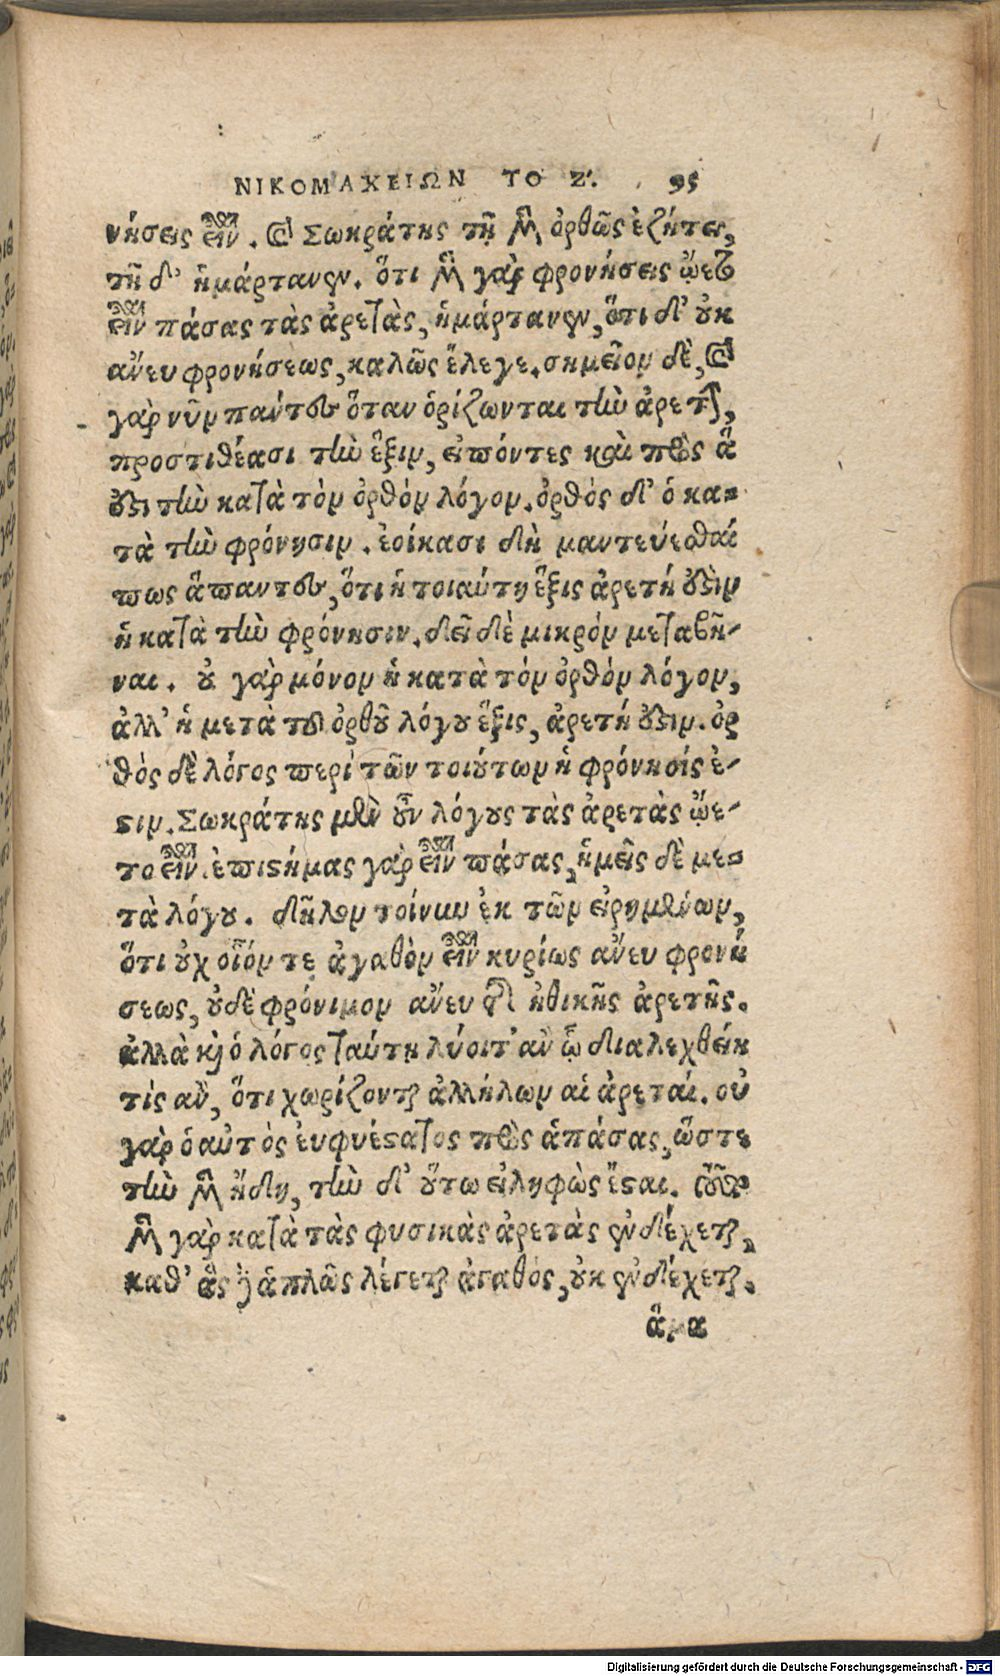 ΝΙΚΟΜΑΧΕΙΩΝ ΤΟ Ζ΄. 95
νήσεις εἶναι. καὶ Σωκράτης τῇ μὲν ὀρθῶς ἐζήτει,
τῇ δ' ἡμάρτανεν. ὅτι μὲν γὰρ φρονήσεις ᾤετο
εἶναι πάσας τὰς ἀρετὰς, ἡμάρτανεν, ὅτι δ' οὐκ
ἄνευ φρονήσεως, καλῶς ἔλεγε. σημεῖον δὲ, καὶ
γὰρ νῦν πάντες ὅταν ὁρίζωνται τὴν ἀρετὴν,
προστιθέασι τὴν ἕξιν, εἰπόντες καὶ πρὸς ἅ
ἐστι τὴν κατὰ τὸν ὀρθὸν λόγον. ὀρθὸς δ' ὁ κα-
τὰ τὴν φρόνησιν. ἐοίκασι δὴ μαντεύεσθαί
πως ἅπαντες, ὅτι ἡ τοιαύτη ἕξις ἀρετή ἐστιν
ἡ κατὰ τὴν φρόνησιν. δεῖ δὲ μικρὸν μεταβῆ-
ναι. οὐ γὰρ μόνον ἡ κατὰ τὸν ὀρθὸν λόγον,
ἀλλ' ἡ μετὰ τοῦ ὀρθοῦ λόγου ἕξις, ἀρετή ἐστιν. ὀρ
θὸς δὲ λόγος περὶ τῶν τοιούτων ἡ φρόνησίς ἐ-
στιν. Σωκράτης μὲν οὖν λόγους τὰς ἀρετὰς ᾤε-
το εἶναι. ἐπιστήμας γὰρ εἶναι πάσας, ἡμεῖς δὲ με-
τὰ λόγου. δῆλον τοίνυν ἐκ τῶν εἰρημένων,
ὅτι οὐχ οἷόν τε ἀγαθὸν εἶναι κυρίως ἄνευ φρονή
σεως, οὐδὲ φρόνιμον ἄνευ τῆς ἠθικῆς ἀρετῆς.
ἀλλὰ καὶ ὁ λόγος ταύτῃ λύοιτ' ἂν ᾧ διαλεχθείη
τίς ἂν, ὅτι χωρίζονται ἀλλήλων αἱ ἀρεταί. οὐ
γὰρ ὁ αὐτὸς εὐφυέστατος πρὸς ἁπάσας, ὥστε
τὴν μὲν ἤδη, τὴν δ' οὔπω εἰληφὼς ἔσται. τοῦτο
μὲν γὰρ κατὰ τὰς φυσικὰς ἀρετὰς ἐνδέχεται,
καθ' ἃς δὲ ἁπλῶς λέγεται ἀγαθός, οὐκ ἐνδέχεται.
ἅμα
Digitalisierung gefördert durch die Deutsche Forschungsgemeinschaft - DFG